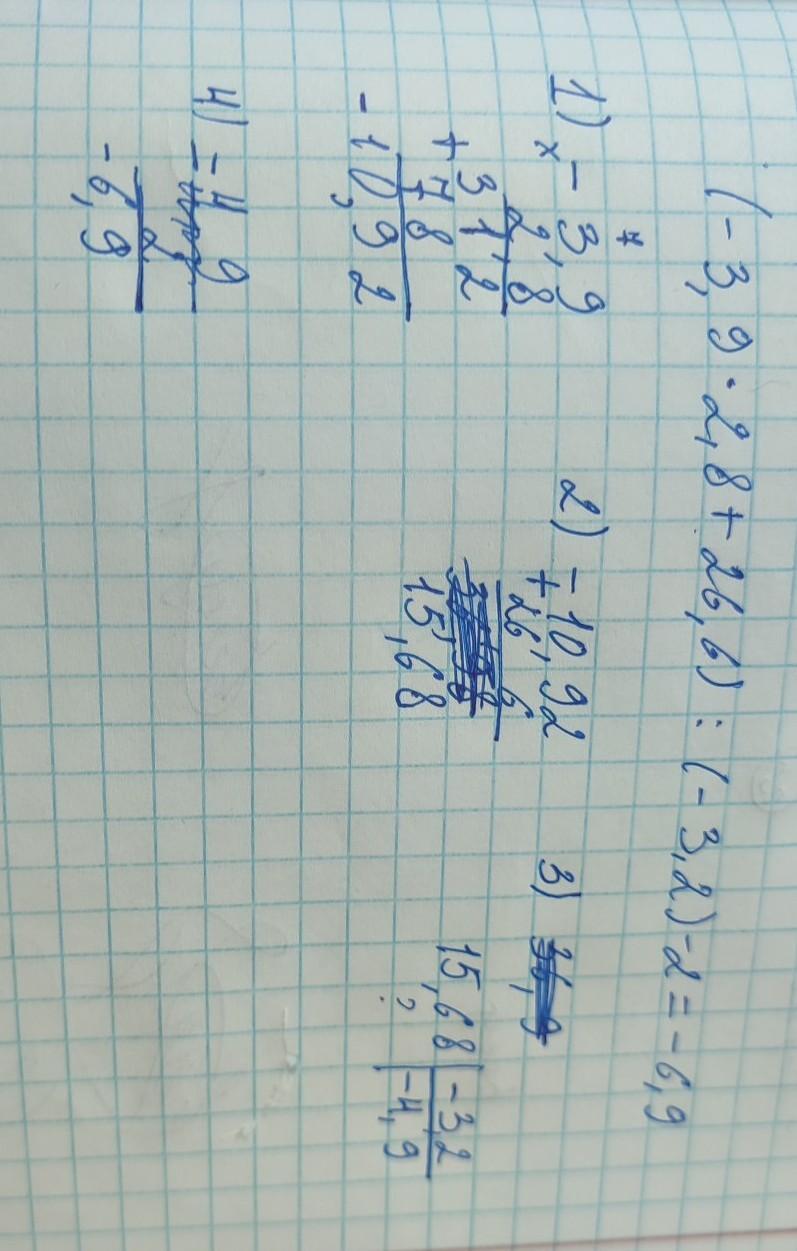 (-3,9·2,8+26,6):(-3,2)-2=-6,9
1) × -3,9
2,8
+ 31,2
78
-10,92
2) -10,92
+ 26,6
15,68
3)
15,68 | -3,2
? | -4,9
4) -4,9
2
-6,9